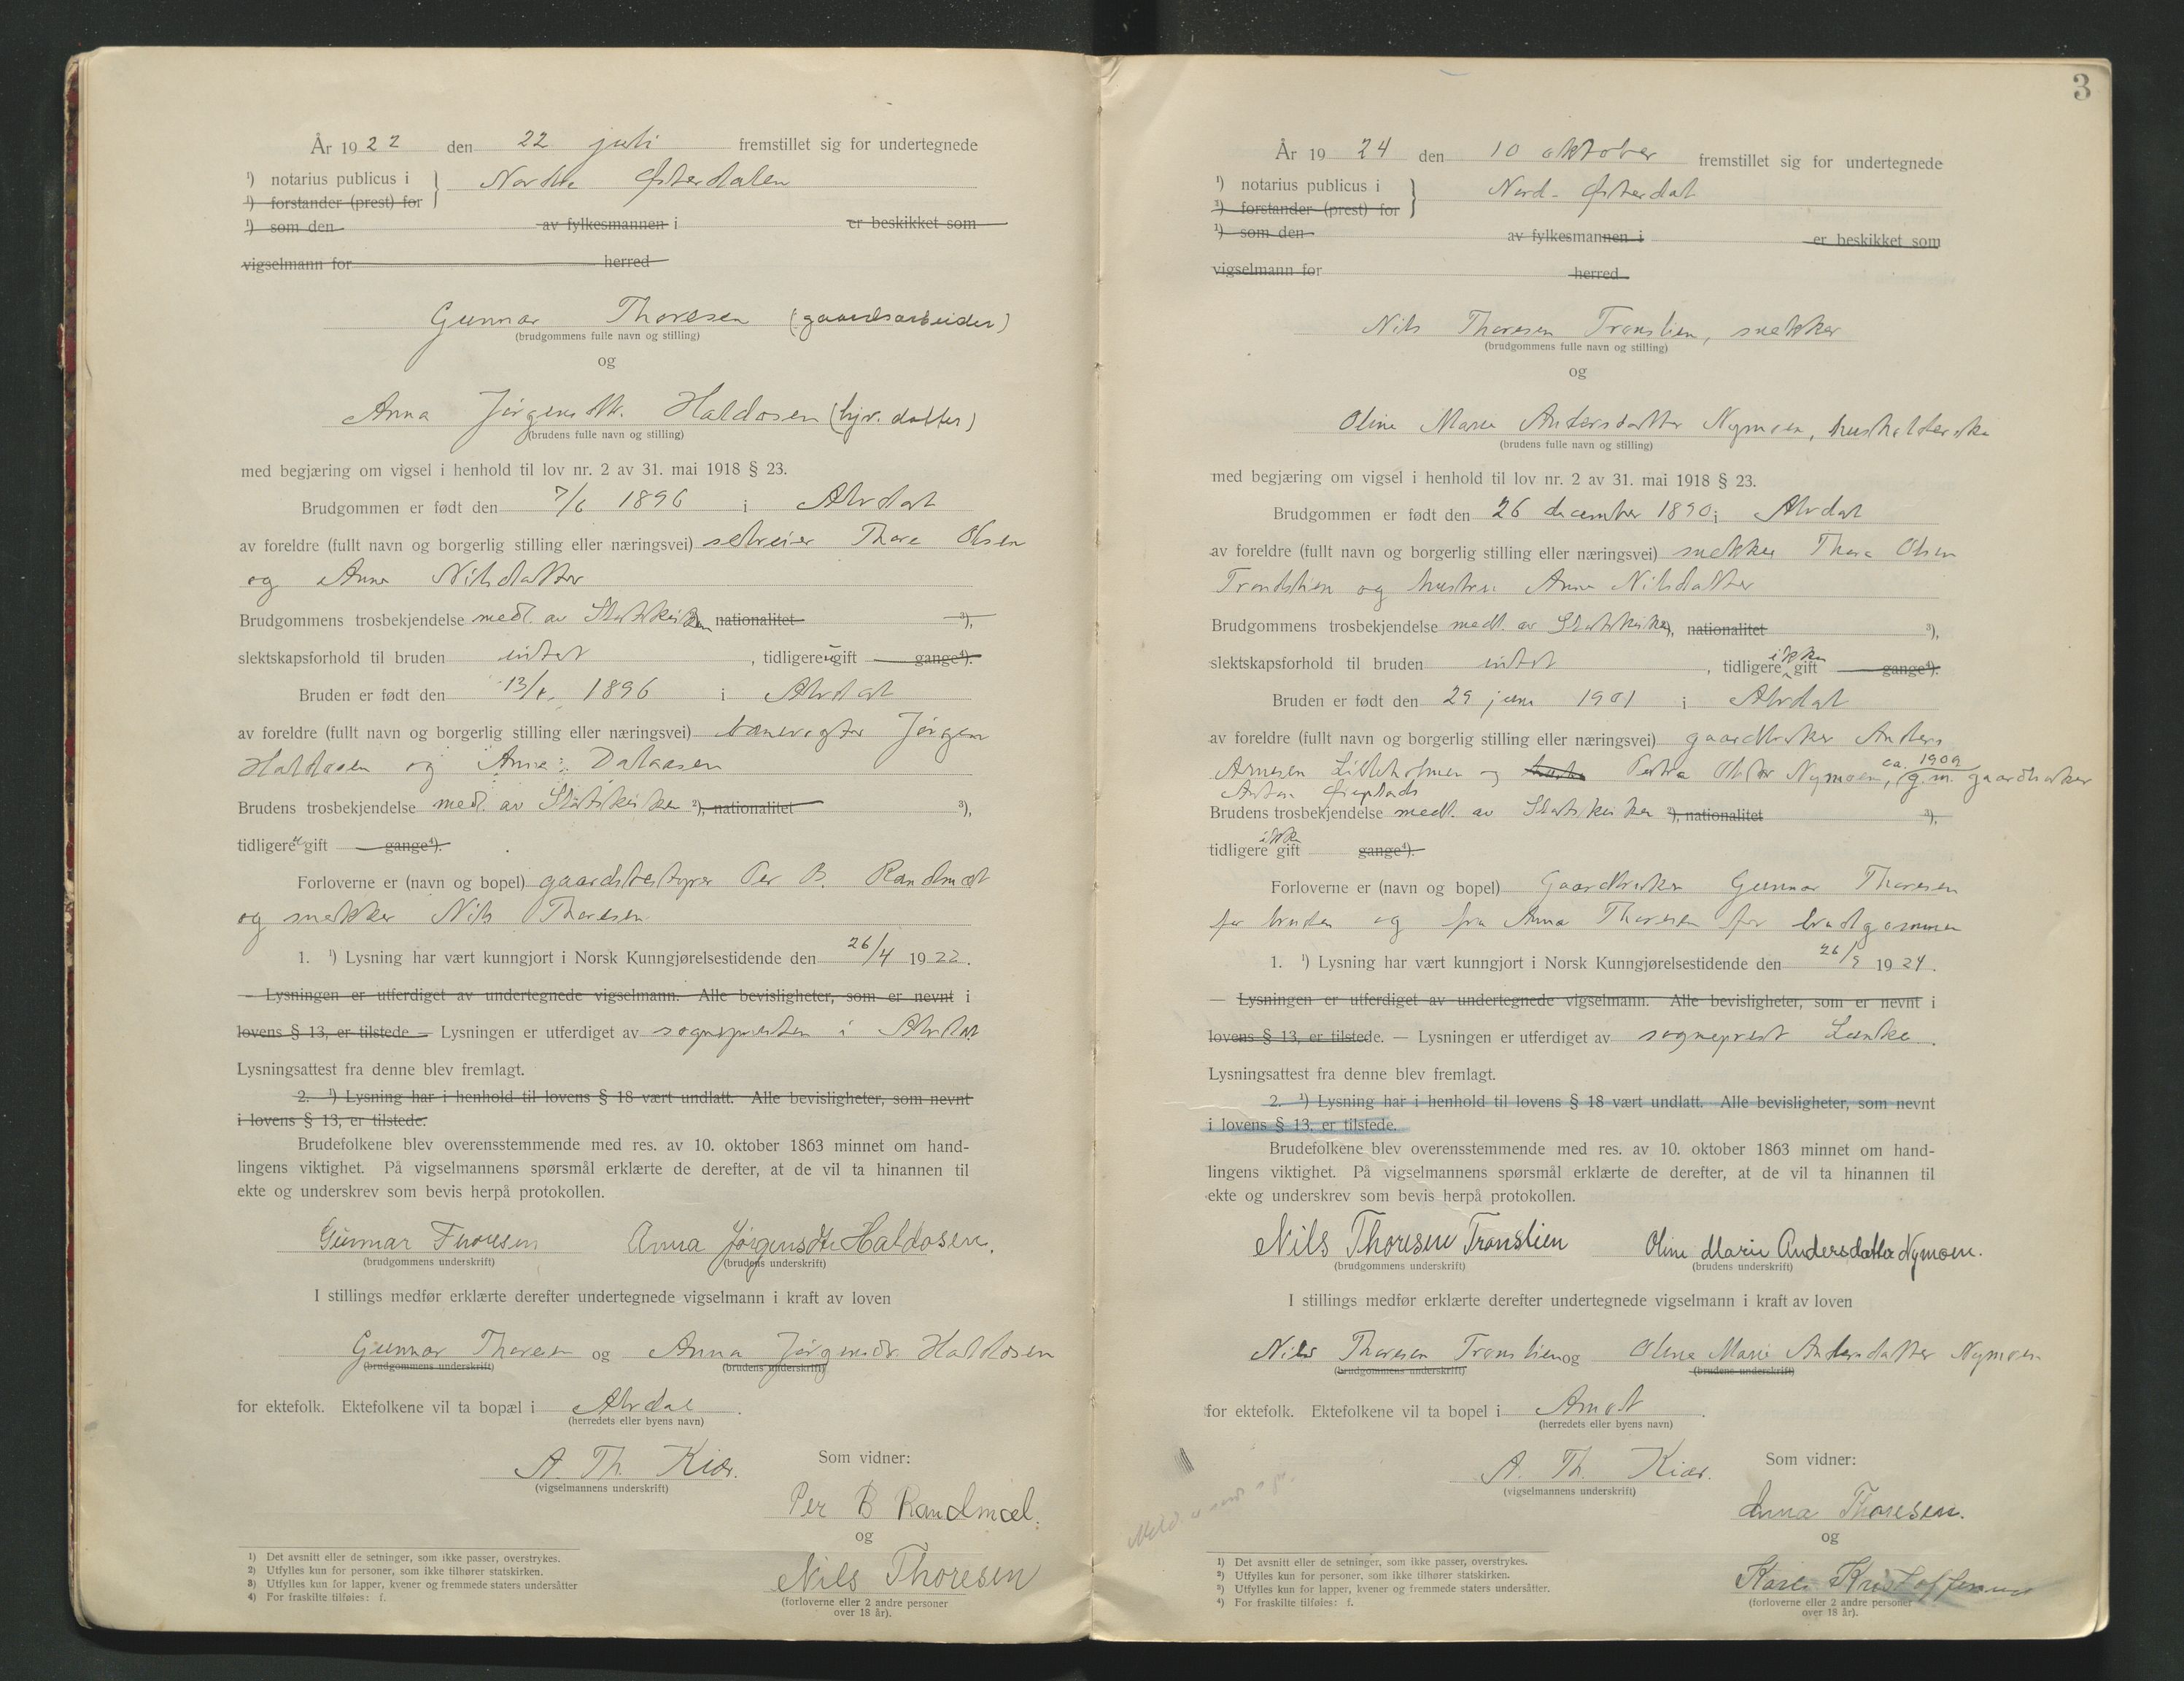 År 1922 den 22 juli fremstillet sig for undertegnede
¹) notarius publicus i } Nordre Østerdalen
¹) forstander (prest) for
¹) som den av fylkesmannen i er beskikket som
vigselmann for herred
Gunnar Thoresen (gaardsarbeider)
(brudgommens fulle navn og stilling)
og
Anna Jørgensdtr. Haldosen (hjv. datter)
(brudens fulle navn og stilling)
med begjæring om vigsel i henhold til lov nr. 2 av 31. mai 1918 § 23.
Brudgommen er født den 7/6 1896 i Alvdal
av foreldre (fullt navn og borgerlig stilling eller næringsvei) selveier Thore Olsen
og Anne Nilsdatter
Brudgommens trosbekjendelse medl. av Statskirken nationalitet ³),
slektskapsforhold til bruden intet , tidligere ugift gange⁴).
Bruden er født den 13/ 1896 i Alvdal
av foreldre (fullt navn og borgerlig stilling eller næringsvei) banevogter Jørgen
Haldosen og Anne Dalaasen
Brudens trosbekjendelse medl. av Statskirken ²), nationalitet ³),
tidligere ugift gange⁴).
Forloverne er (navn og bopel) gaardsbestyrer Per B. Randmæl
og snekker Nils Thoresen
1. ¹) Lysning har vært kunngjort i Norsk Kunngjørelsestidende den 26/4 1922.
— Lysningen er utferdiget av undertegnede vigselmann. Alle bevisligheter, som er nevnt i
lovens § 13, er tilstede — Lysningen er utferdiget av sognepresten i Alvdal
Lysningsattest fra denne blev fremlagt.
2. ¹) Lysning har i henhold til lovens § 18 vært undlatt. Alle bevisligheter, som nevnt
i lovens § 13, er tilstede.
Brudefolkene blev overensstemmende med res. av 10. oktober 1863 minnet om hand-
lingens viktighet. På vigselmannens spørsmål erklærte de derefter, at de vil ta hinannen til
ekte og underskrev som bevis herpå protokollen.
Gunnar Thoresen Anna Jørgensdtr Haldosen.
(brudgommens underskrift) (brudens underskrift)
I stillings medfør erklærte derefter undertegnede vigselmann i kraft av loven
Gunnar Thoresen og Anna Jørgensdr. Haldosen
(brudgommens underskrift) (brudens underskrift)
for ektefolk. Ektefolkene vil ta bopæl i Alvdal .
(herredets eller byens navn)
A. Th. Kiær.
(vigselmannens underskrift)
Som vidner:
Per B Randmæl.
og
Nils Thoresen
(forloverne eller 2 andre personer
over 18 år).
1) Det avsnitt eller de setninger, som ikke passer, overstrykes.
2) Utfylles kun for personer, som ikke tilhører statskirken.
3) Utfylles kun for lapper, kvener og fremmede staters undersåtter
4) For fraskilte tilføies: f.
3
År 1924 den 10 oktober fremstillet sig for undertegnede
¹) notarius publicus i } Nord-Østerdal
¹) forstander (prest) for
¹) som den av fylkesmannen i er beskikket som
vigselmann for herred
Nils Thoresen Tronslien, snekker
(brudgommens fulle navn og stilling)
og
Oline Marie Andersdatter Nymoen, husholderske
(brudens fulle navn og stilling)
med begjæring om vigsel i henhold til lov nr. 2 av 31. mai 1918 § 23.
Brudgommen er født den 26 december 1890 i Alvdal
av foreldre (fullt navn og borgerlig stilling eller næringsvei) snekker Thore Olsen
Trondslien og hustru Anne Nilsdatter
Brudgommens trosbekjendelse medl. av Statskirken, nationalitet ³),
slektskapsforhold til bruden intet , tidligere ikke gift gange⁴).
Bruden er født den 29 juni 1901 i Alvdal
av foreldre (fullt navn og borgerlig stilling eller næringsvei) gaardbruker Anders
Arnesen Lilleholmen og Petra Olsdtr Nymoen, ca. 1909 g. m. gaardbruker
Anton
Brudens trosbekjendelse medl. av Statskirken ²), nationalitet ³),
tidligere ikke gift gange⁴).
Forloverne er (navn og bopel) Gaardbruker Gunnar Thoresen
for bruden og fru Anna Thoresen for brudgommen
1. ¹) Lysning har vært kunngjort i Norsk Kunngjørelsestidende den 26/9 1924.
— Lysningen er utferdiget av undertegnede vigselmann. Alle bevisligheter, som er nevnt i
lovens § 13, er tilstede. — Lysningen er utferdiget av sogneprest Lunke.
Lysningsattest fra denne blev fremlagt.
2. ¹) Lysning har i henhold til lovens § 18 vært undlatt. Alle bevisligheter, som nevnt
i lovens § 13, er tilstede.
Brudefolkene blev overensstemmende med res. av 10. oktober 1863 minnet om hand-
lingens viktighet. På vigselmannens spørsmål erklærte de derefter, at de vil ta hinannen til
ekte og underskrev som bevis herpå protokollen.
Nils Thoresen Tronslien Oline Marie Andersdatter Nymoen.
(brudgommens underskrift) (brudens underskrift)
I stillings medfør erklærte derefter undertegnede vigselmann i kraft av loven
Nils Thoresen Tronslien og Oline Marie Andersdatter Nymoen
(brudgommens underskrift) (brudens underskrift)
for ektefolk. Ektefolkene vil ta bopel i Amot .
(herredets eller byens navn)
A. Th. Kiær.
(vigselmannens underskrift)
Som vidner:
Anna Thoresen.
og
Karl Kristoffersen
(forloverne eller 2 andre personer
over 18 år).
1) Det avsnitt eller de setninger, som ikke passer, overstrykes.
2) Utfylles kun for personer, som ikke tilhører statskirken.
3) Utfylles kun for lapper, kvener og fremmede staters undersåtter.
4) For fraskilte tilføies: f.